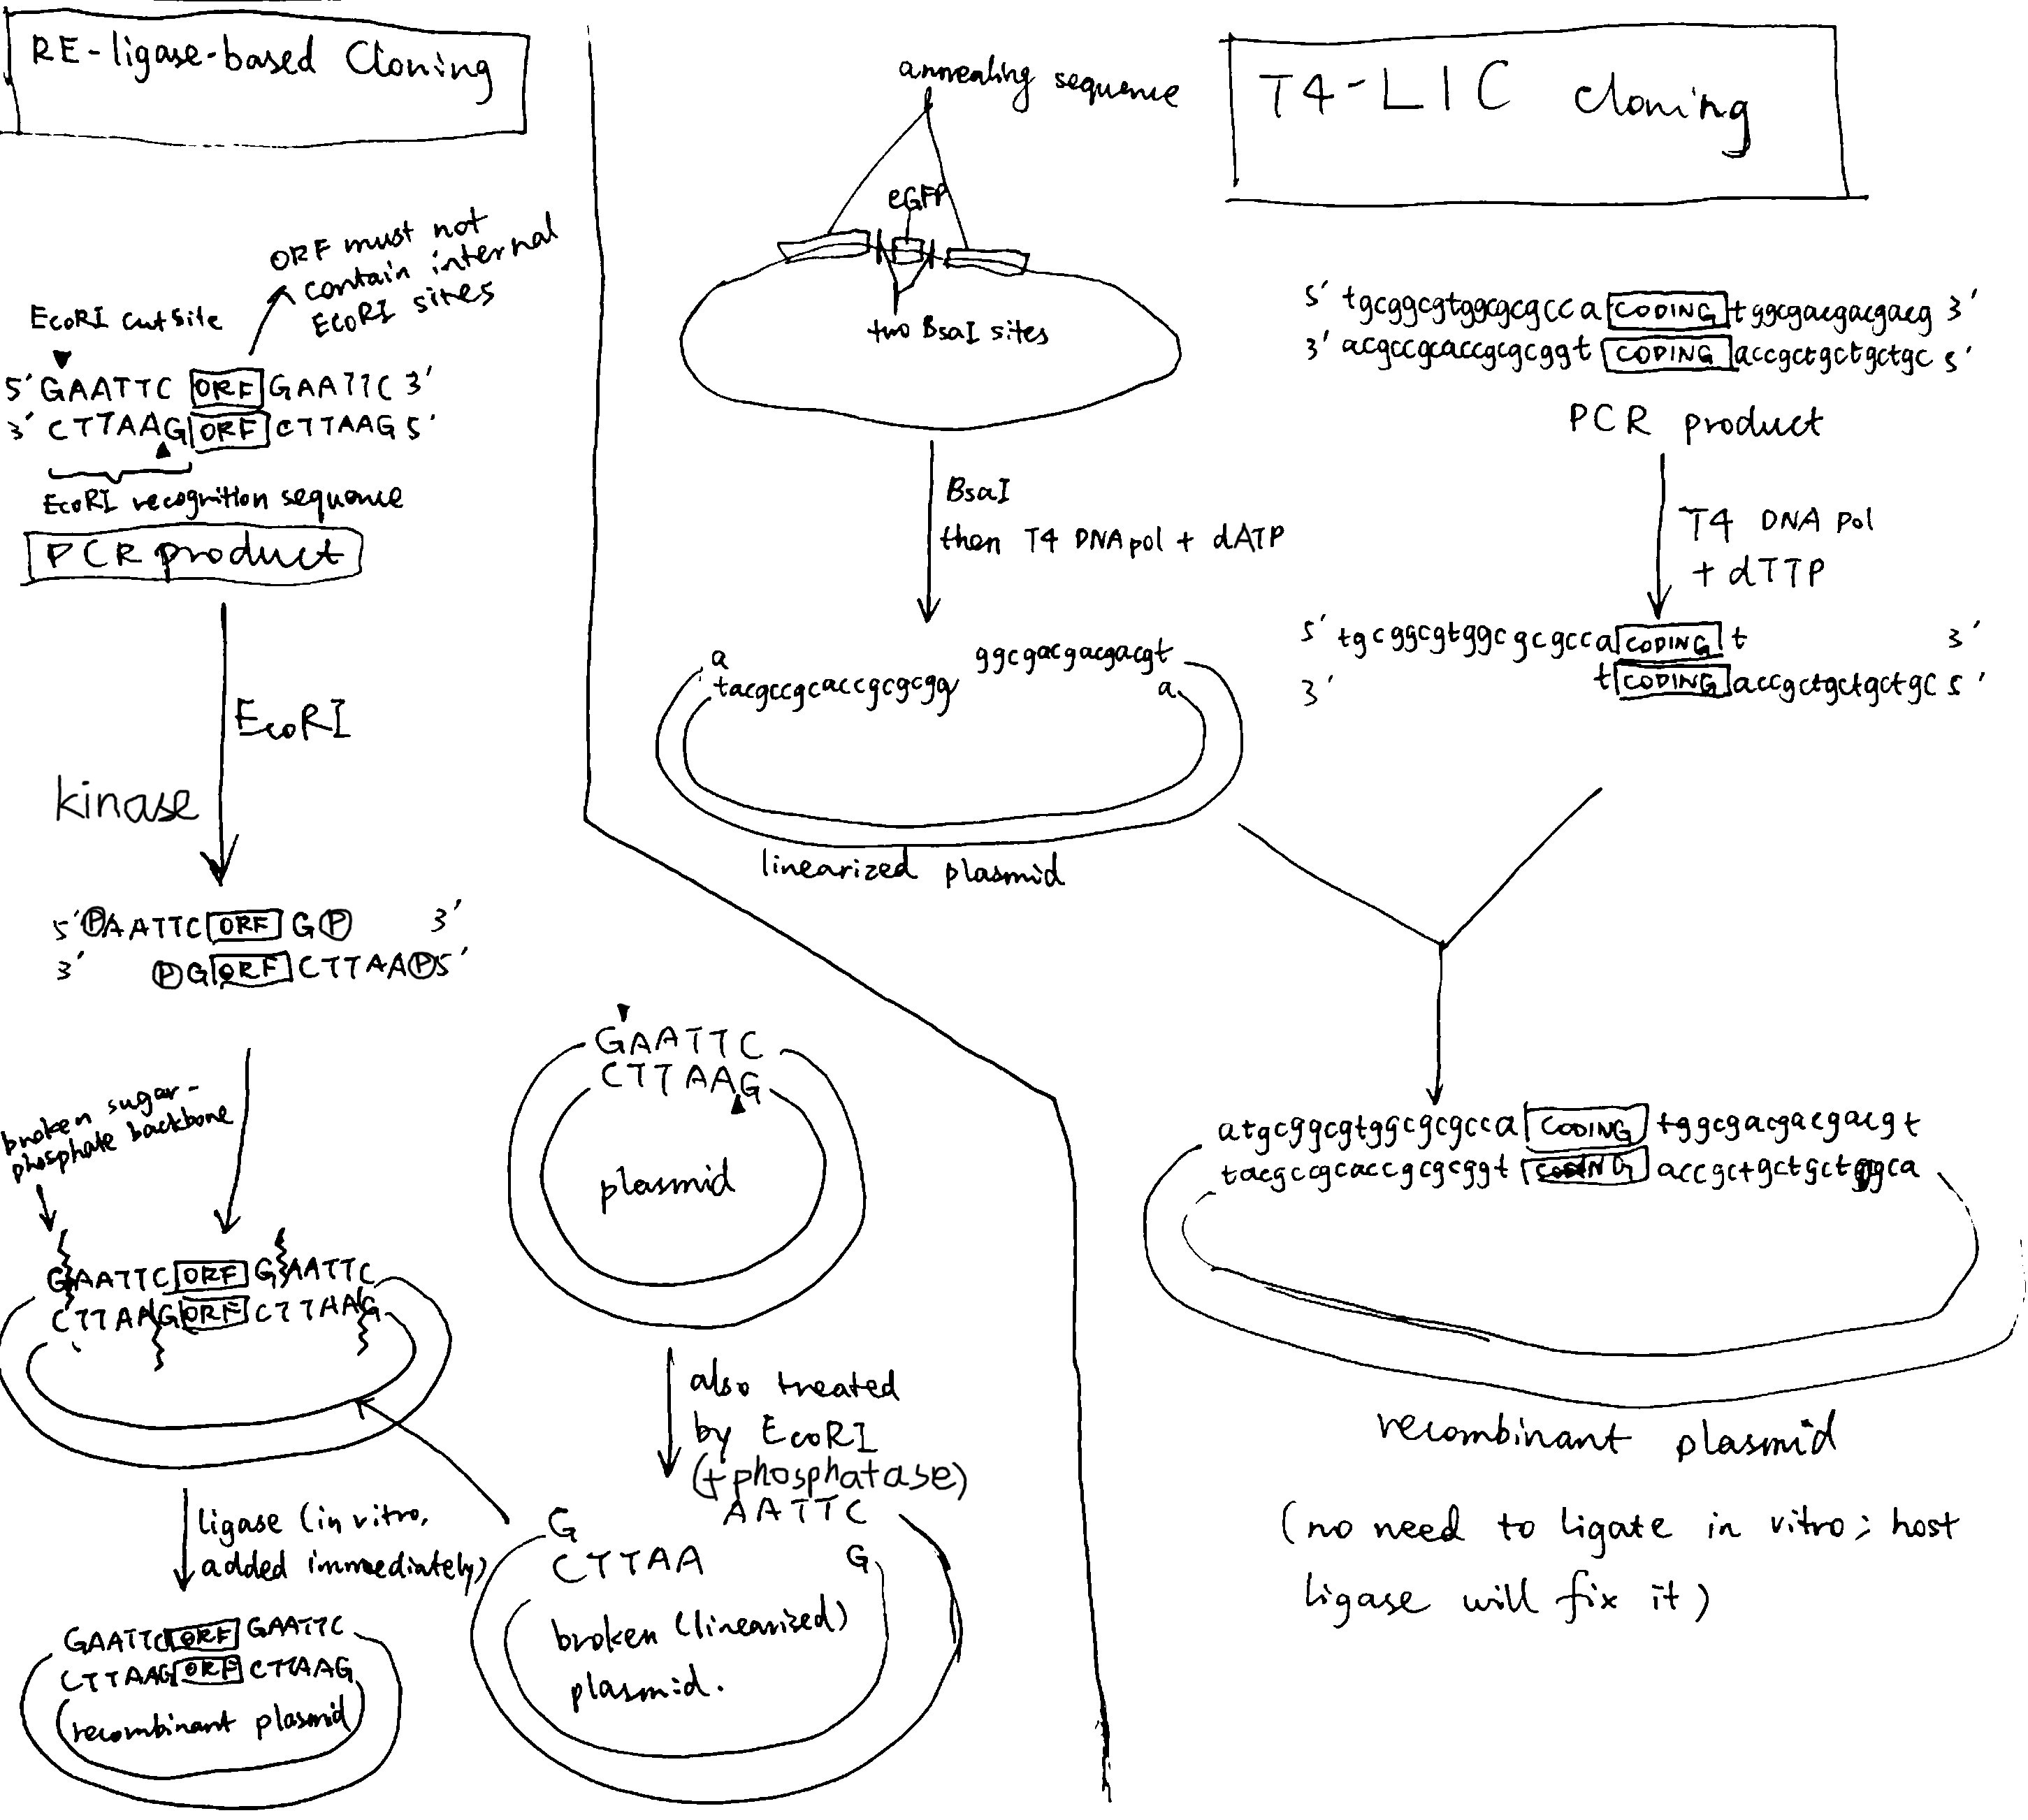 RE-ligase-based Cloning
ORF must not
contain internal
EcoRI sites
EcoRI cutsite
5' GAATTC ORF GAATTC 3'
3' CTTAAG ORF CTTAAG 5'
EcoRI recognition sequence
PCR product
EcoRI
kinase
5' P AATTC ORF G P 3'
3' P G ORF CTTAA P 5'
broken sugar-
phosphate backbone
GAATTC ORF GAATTC
CTTAAG ORF CTTAAG
ligase (in vitro,
added immediately)
GAATTC ORF GAATTC
CTTAAG ORF CTTAAG
recombinant plasmid
GAATTC
CTTAAG
plasmid
also treated
by EcoRI
(+phosphatase)
G AATTC
CTTAA G
broken (linearized)
plasmid.
T4-LIC cloning
annealing sequence
eGFP
two BsaI sites
BsaI
then T4 DNA pol + dATP
a ggcgacgacgacgt
tacgccgcaccgcgcgg a
linearized plasmid
5' tgcggcgtggcgcgcca CODING tggcgacgacgacg 3'
3' acgccgcaccgcgcggt CODING accgctgctgctgc 5'
PCR product
T4 DNA pol
+ dTTP
5' tgcggcgtggcgcgcca CODING t 3'
3' t CODING accgctgctgctgc 5'
atgcggcgtggcgcgcca CODING tggcgacgacgacgt
tacgccgcaccgcgcggt CODING accgctgctgctggca
recombinant plasmid
(no need to ligate in vitro; host
ligase will fix it)